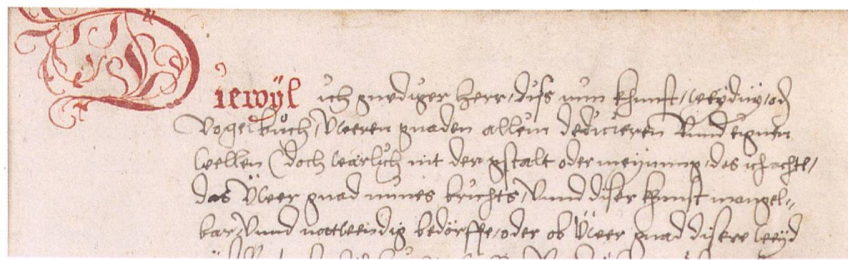 Diewÿl ich gnediger Herr, diss min khunst, weÿdnÿ, od
Vogelbůch, Üweren gnaden allein dedicieren Vnnd eignen
wellen (doch warlich nit der gstalt oder meÿnung, das ich achte,
das Üwer gnad mines brichts, Vnnd diser khunst mangel-
bar, Vnnd nottwendig bedörffe, oder ob Üwer gnad disere weÿd